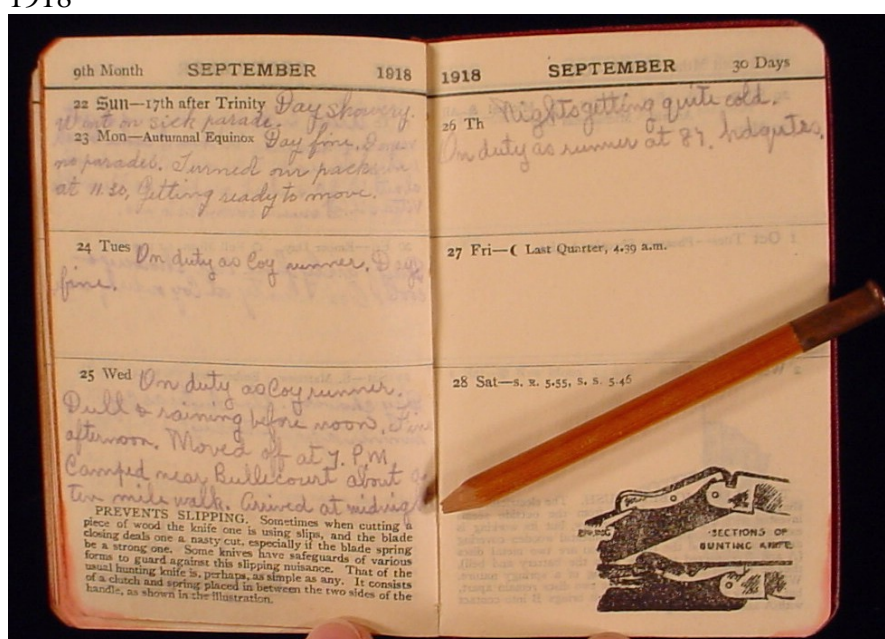 1918
9th Month SEPTEMBER 1918
22 Sun—17th after Trinity Day showery.
Went on sick parade.
23 Mon—Autumnal Equinox Day fine.
no parades. Turned our packs in
at 11.30, Getting ready to move.
24 Tues On duty as Coy runner. Day
fine.
25 Wed On duty as Coy runner.
Dull & raining before noon. Fine
afternoon. Moved off at 7. P.M.
Camped near Bullecourt about a
ten mile walk. Arrived at midnight
PREVENTS SLIPPING. Sometimes when cutting a
piece of wood the knife one is using slips, and the blade
closing deals one a nasty cut, especially if the blade spring
be a strong one. Some knives have safeguards of various
forms to guard against this slipping nuisance. That of the
usual hunting knife is, perhaps, as simple as any. It consists
of a clutch and spring placed in between the two sides of the
handle, as shown in the illustration.
1918 SEPTEMBER 30 Days
26 Th Nights getting quite cold.
On duty as runner at 87. hdqutrs.
27 Fri—☾ Last Quarter, 4.39 a.m.
28 Sat—S. R. 5.55, S. S. 5.46
SPRING
SECTIONS OF
BUNTING KNIFE